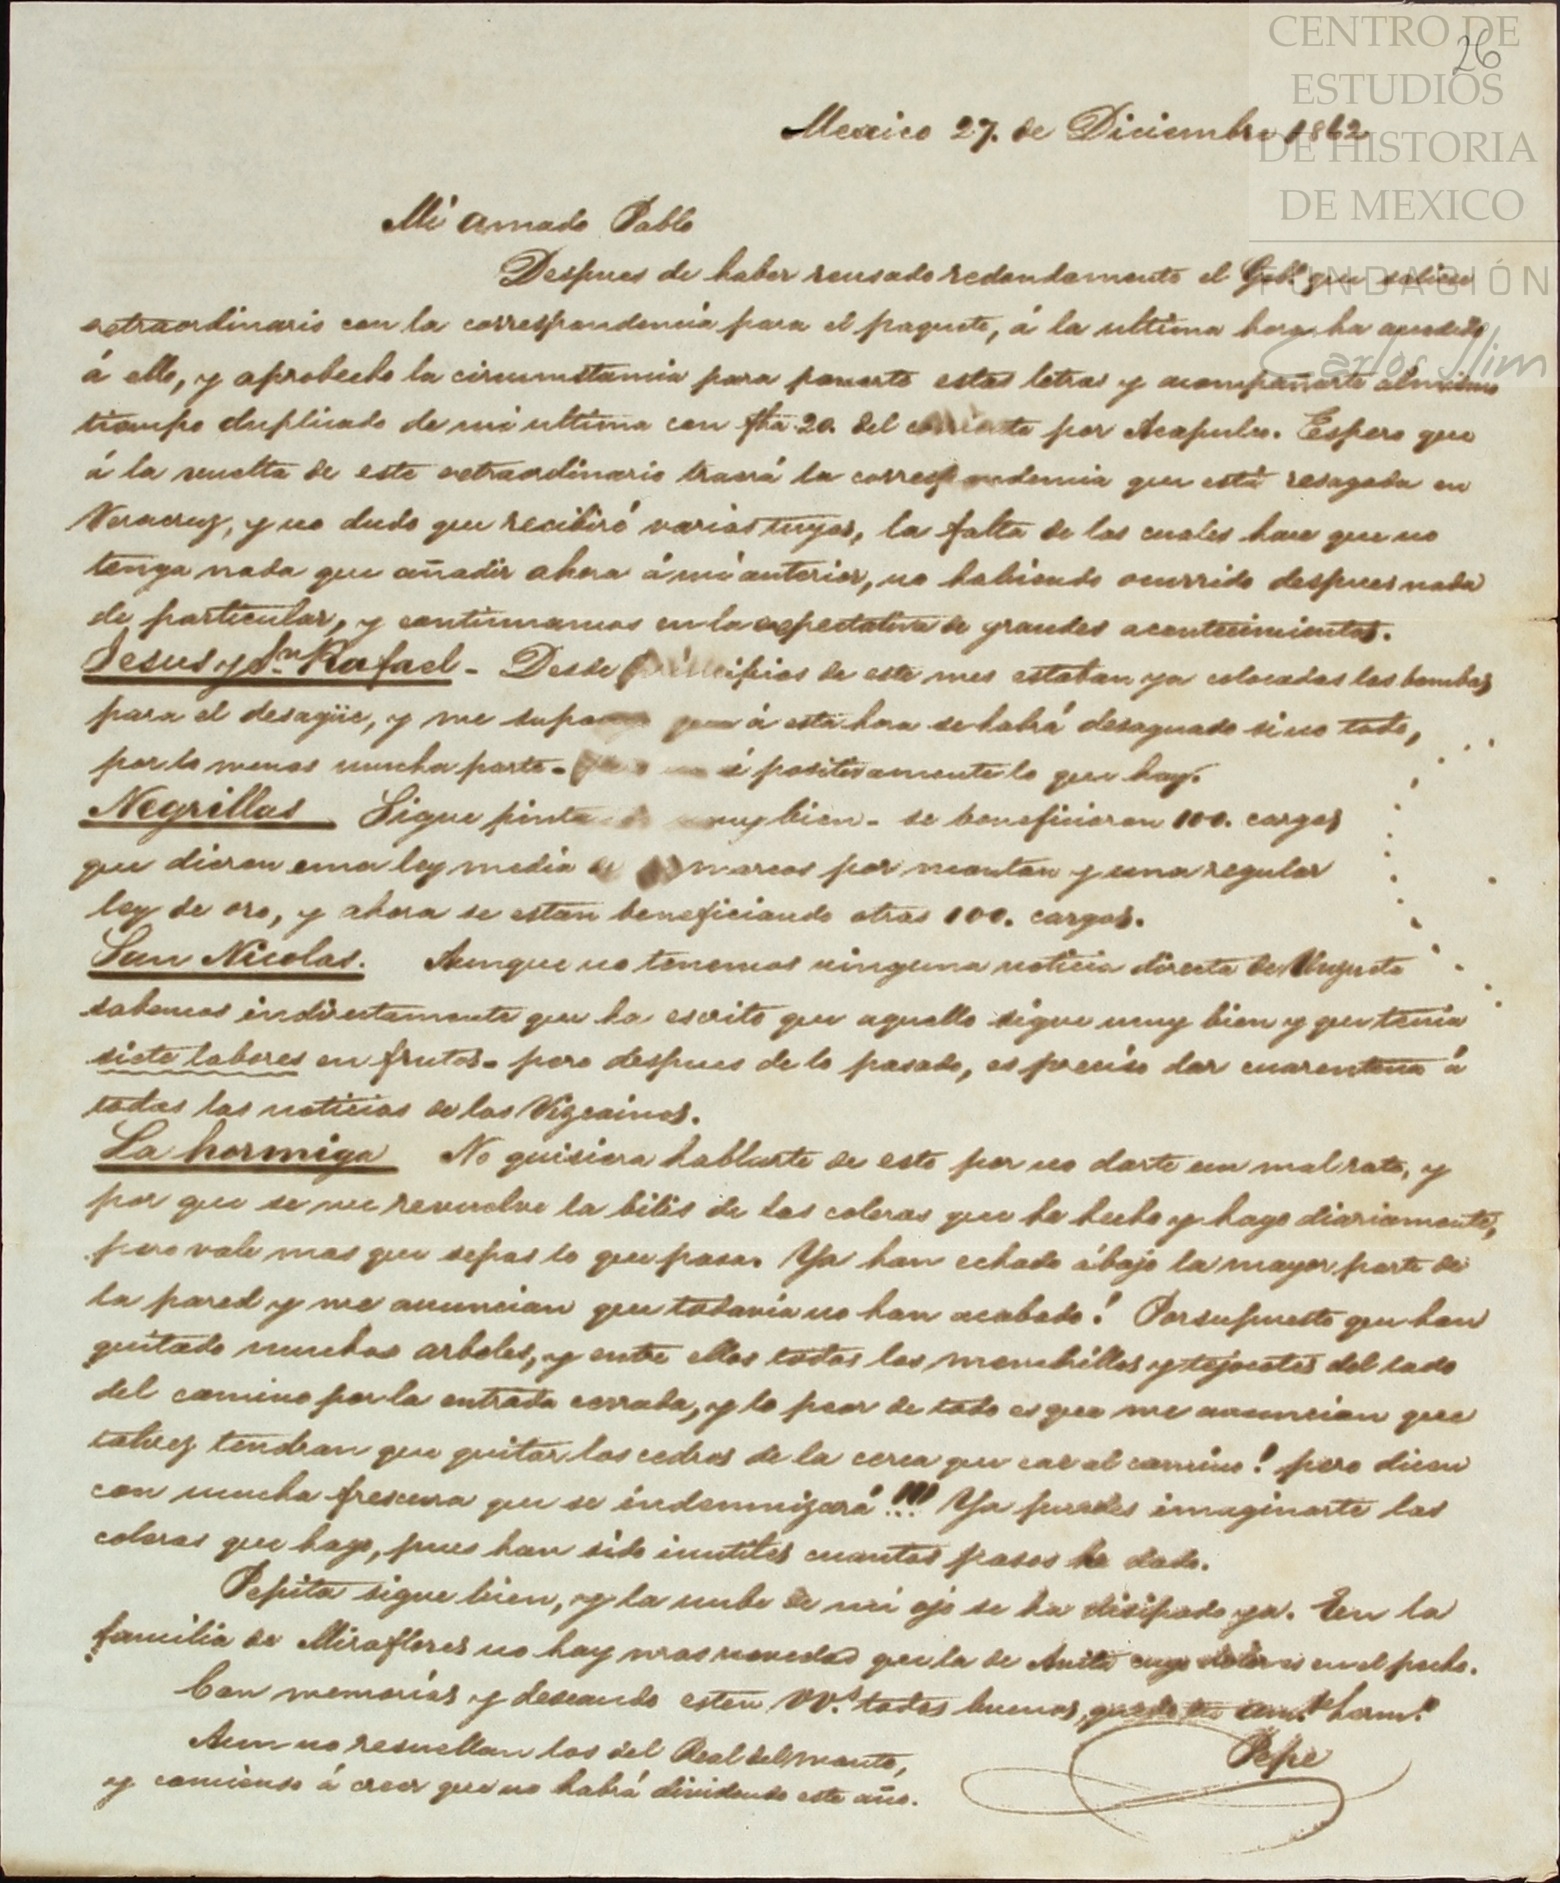 CENTRO DE
ESTUDIOS
DE HISTORIA
DE MEXICO
FUNDACIÓN
Carlos Slim
26
Mexico 27. de Diciembre 1862
Mi amado Pablo
Despues de haber reusado redondamente el Gob.º que saliera
extraordinario con la correspondencia para el paquete, á la ultima hora ha accedido
á ello, y aprobecho la circumstancia para ponerte estas letras y acompañarte al mismo
tiempo duplicado de mi ultima con fha 20. del corriente por Acapulco. Espero que
á la vuelta de este extraordinario traerá la correspondencia que está resagada en
Veracruz, y no dudo que recibiré varias tuyas, la falta de las cuales hace que no
tenga nada que añadir ahora á mi anterior, no habiendo ocurrido despues nada
de particular, y continuamos en la expectativa de grandes acontecimientos.
Jesus y Sn. Rafael - Desde principios de este mes estaban ya colocadas las bombas
para el desagüe, y me supongo que á esta hora se habrá desaguado si no todo,
por lo menos mucha parte - pero no sé positivamente lo que hay.
Negrillas Sigue pintando muy bien - se beneficiaron 100. cargas
que dieron una ley media de marcos por monton y una regular
ley de oro, y ahora se estan beneficiando otras 100. cargas.
San Nicolas. Aunque no tenemos ninguna noticia directa de
sabemos indirectamente que ha escrito que aquello sigue muy bien y que tenia
siete labores en frutos - pero despues de lo pasado, es preciso dar cuarentena á
todas las noticias de los Vizcainos.
La hormiga No quisiera hablarte de esto por no darte un mal rato, y
por que se me revuelve la bilis de las coleras que he hecho y hago diariamente,
pero vale mas que sepas lo que pasa. Ya han echado ábajo la mayor parte de
la pared y me anuncian que todavia no han acabado! Por supuesto que han
quitado muchos arboles, y entre ellos todos los menbrillos y tejocotes del lado
del camino por la entrada cerrada, y lo peor de todo es que me anuncian que
talvez tendran que quitar los cedros de la cerca que cae al camino! pero dicen
con mucha frescura que se indemnizará!!! Ya puedes imaginarte las
coleras que hago, pues han sido inutiles cuantos pasos he dado.
Pepita sigue bien, y la nube de mi ojo se ha disipado ya. En la
familia de Miraflores no hay mas novedad que la de Anita cuyo dolor es en el pecho.
Con memorias y deseando esten VV.s todos buenos, quedo tu am.te herm.o
Pepe
Aun no resuellan los del Real del monte,
y comienso á creer que no habrá dividendo este año.